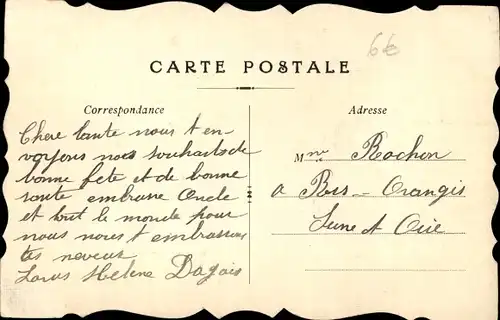 6€
CARTE POSTALE
Correspondance
Chere tante nous t en-
voyons nos souhaits de
bonne fete et de bonne
sante embrasse Oncle
et tout le monde pour
nous nous t embrassons
tes neveux
Helene Dagois
Adresse
Mme Rochon
a Ris-Orangis
Seine et Oise